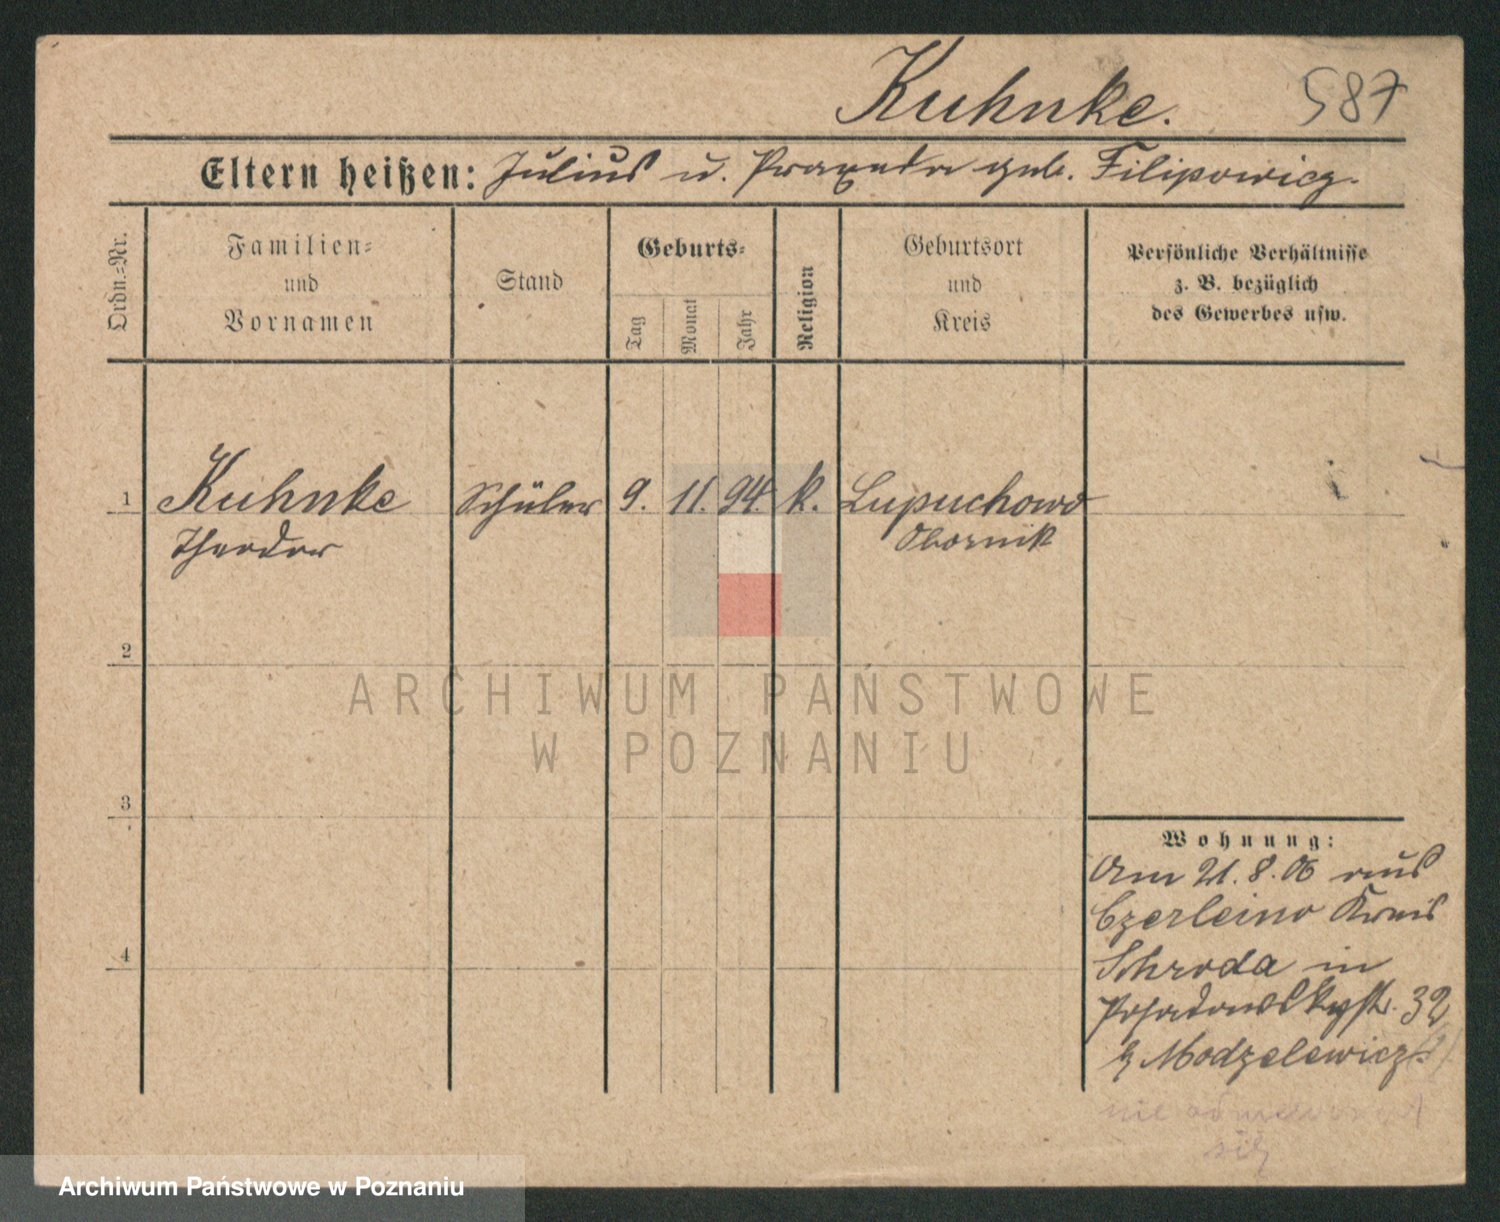 Kuhnke.
587
Eltern heißen: Julius u. Praxeda geb. Filipowicz.
Ordn.=Nr.
Familien=
und
Vornamen
Stand
Geburts=
Tag
Monat
Jahr
Religion
Geburtsort
und
Kreis
Persönliche Verhältnisse
z. B. bezüglich
des Gewerbes usw.
1 Kuhnke Schüler 9. 11. 94. k. Lupuchowo
Theodor Obornik
2
ARCHIWUM PAŃSTWOWE
W POZNANIU
3
Wohnung:
Am 21. 8. 06 aus
Czerleino Kreis
Schroda in
Posadowskystr. 32
b Modzelewicz.
4
nie odmeldował
się
Archiwum Państwowe w Poznaniu